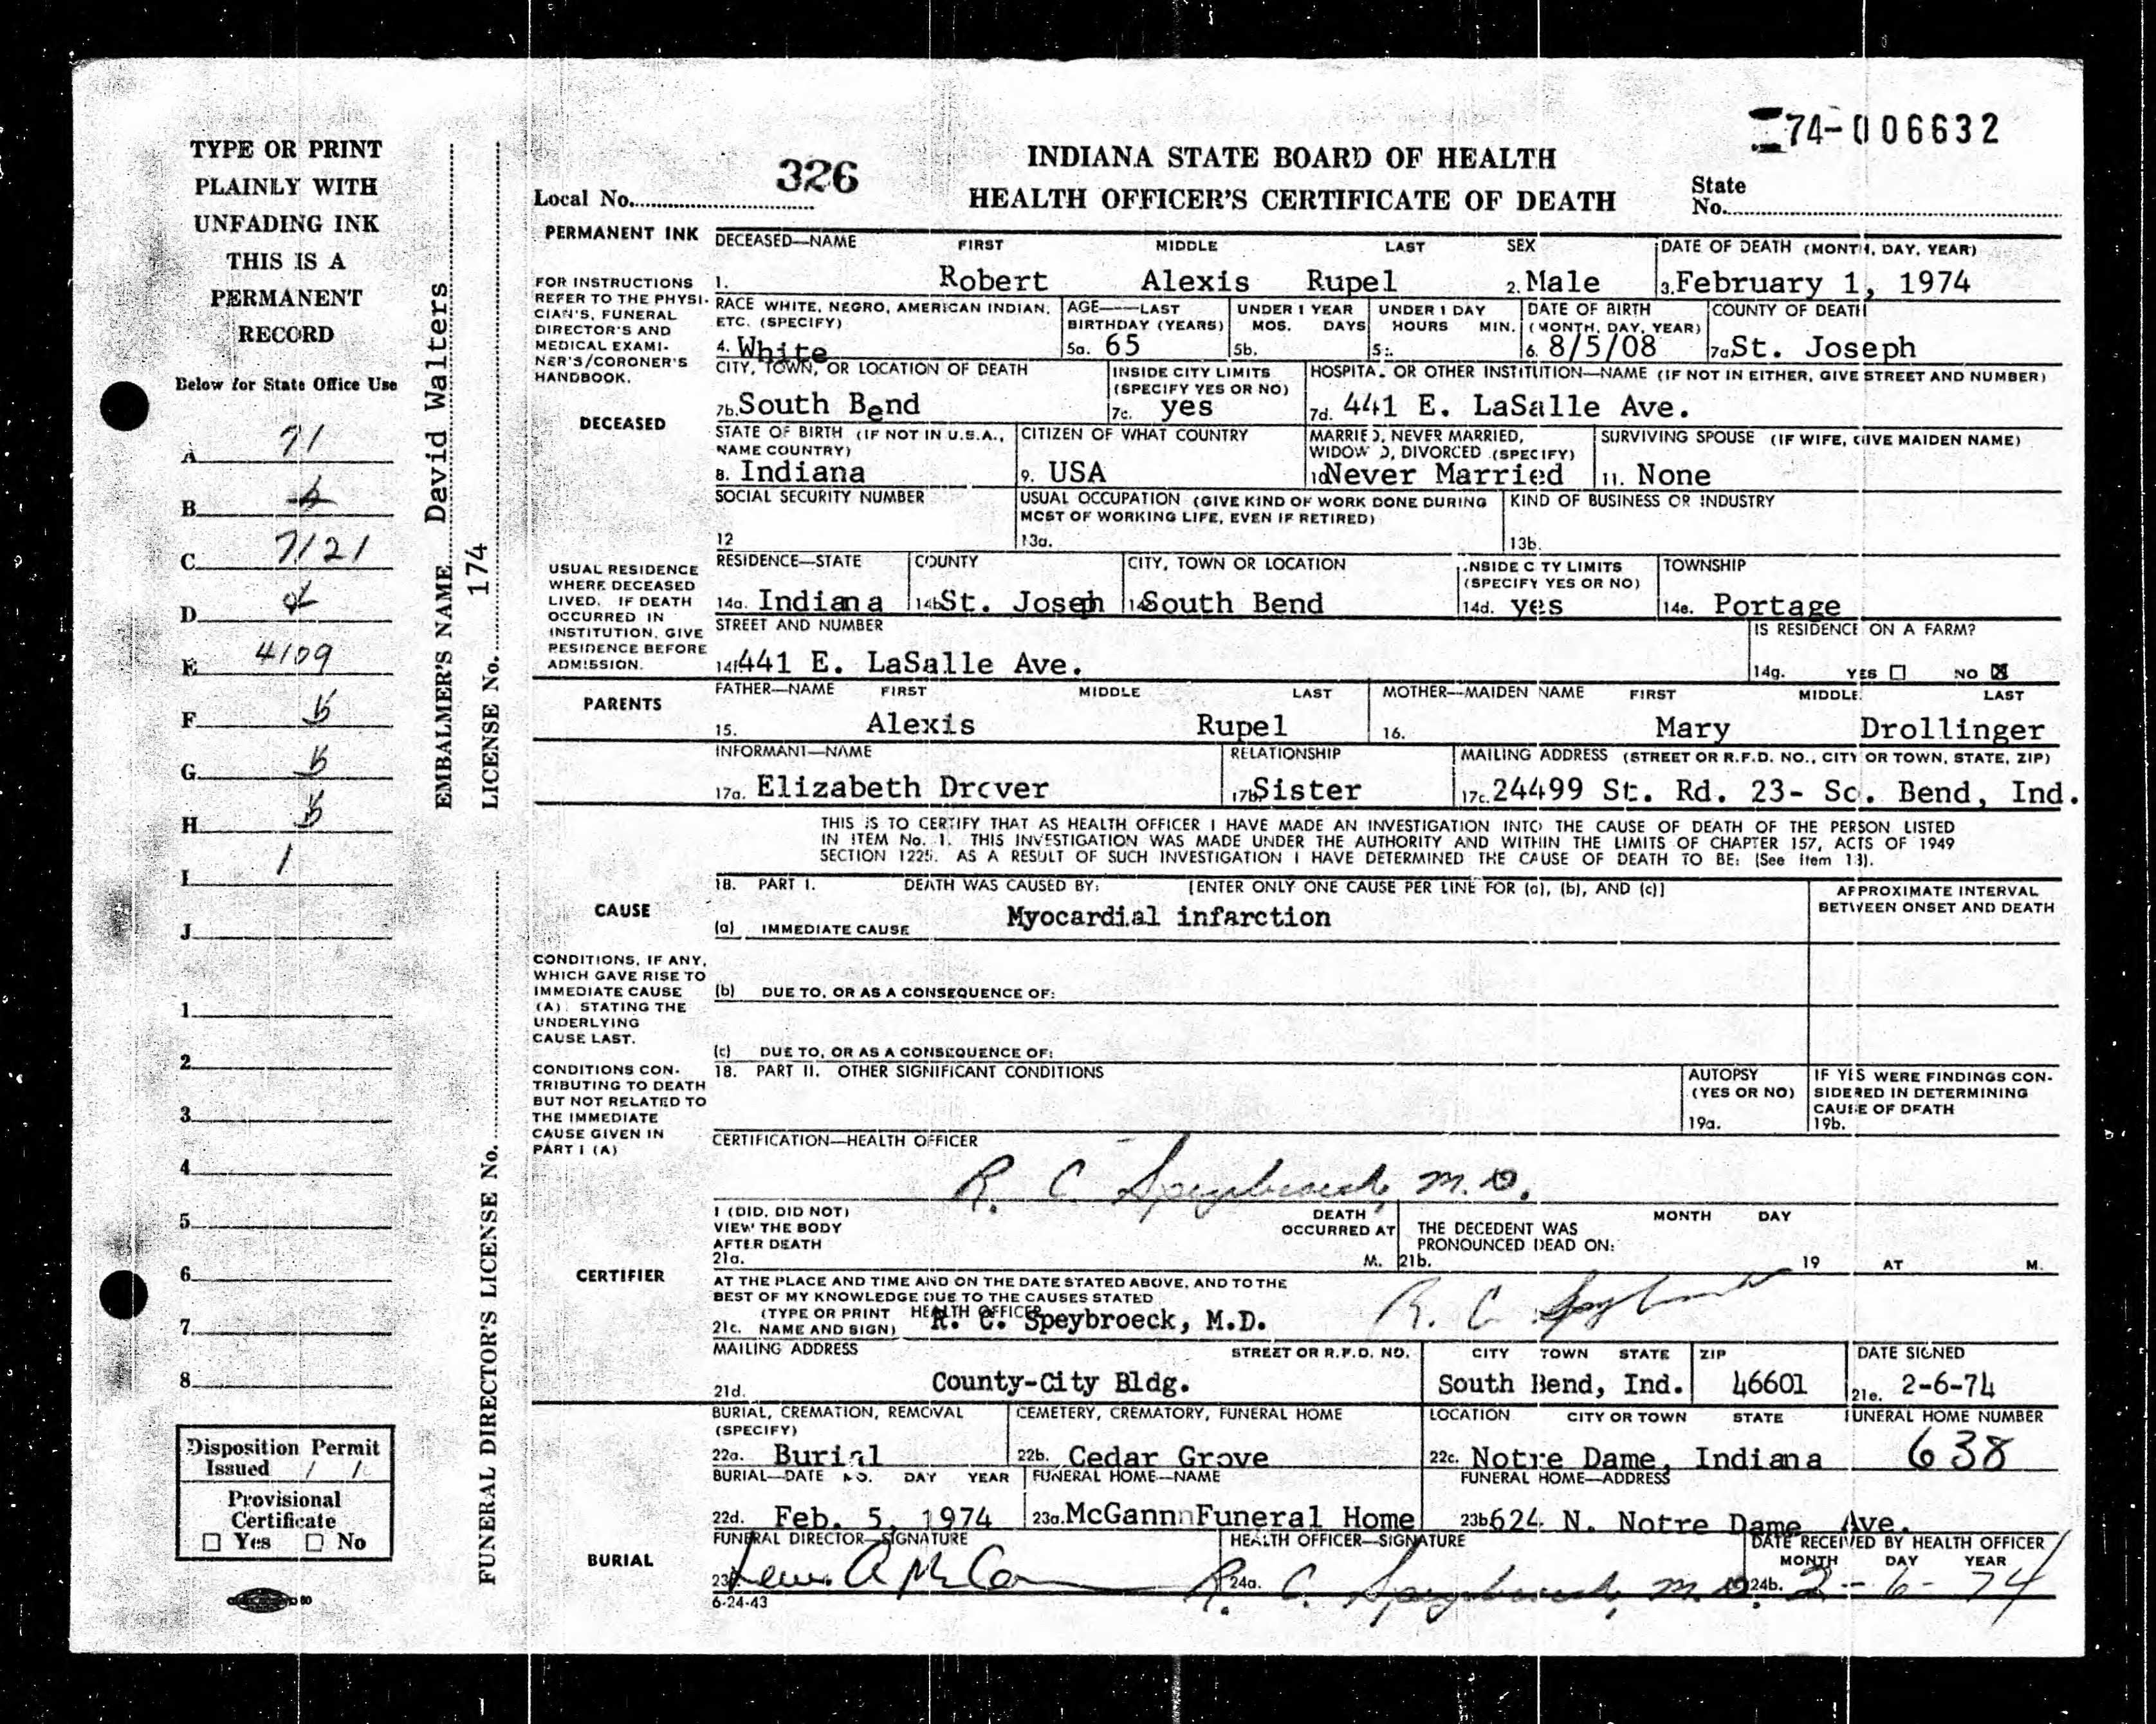 74-006632
TYPE OR PRINT
PLAINLY WITH
UNFADING INK
THIS IS A
PERMANENT
RECORD
Below for State Office Use
A 71
B
C 7121
D
E 4109
F
G
H
I 1
J
1
2
3
4
5
6
7
8
Disposition Permit
Issued / /
Provisional
Certificate
☐ Yes ☐ No
EMBALMER'S NAME David Walters
LICENSE No. 174
FUNERAL DIRECTOR'S LICENSE No.
INDIANA STATE BOARD OF HEALTH
Local No. 326 HEALTH OFFICER'S CERTIFICATE OF DEATH State No.
PERMANENT INK
FOR INSTRUCTIONS
REFER TO THE PHYSI-
CIAN'S, FUNERAL
DIRECTOR'S AND
MEDICAL EXAMI-
NER'S/CORONER'S
HANDBOOK.
DECEASED
DECEASED—NAME FIRST MIDDLE LAST SEX DATE OF DEATH (MONTH, DAY, YEAR)
1. Robert Alexis Rupel 2. Male 3. February 1, 1974
RACE WHITE, NEGRO, AMERICAN INDIAN, ETC. (SPECIFY) AGE—LAST BIRTHDAY (YEARS) UNDER 1 YEAR MOS. DAYS UNDER 1 DAY HOURS MIN. DATE OF BIRTH (MONTH, DAY, YEAR) COUNTY OF DEATH
4. White 5a. 65 5b. 5c. 6. 8/5/08 7a St. Joseph
CITY, TOWN, OR LOCATION OF DEATH INSIDE CITY LIMITS (SPECIFY YES OR NO) HOSPITAL OR OTHER INSTITUTION—NAME (IF NOT IN EITHER, GIVE STREET AND NUMBER)
7b. South Bend 7c. yes 7d. 441 E. LaSalle Ave.
STATE OF BIRTH (IF NOT IN U.S.A., NAME COUNTRY) CITIZEN OF WHAT COUNTRY MARRIED, NEVER MARRIED, WIDOWED, DIVORCED (SPECIFY) SURVIVING SPOUSE (IF WIFE, GIVE MAIDEN NAME)
8. Indiana 9. USA 10 Never Married 11. None
SOCIAL SECURITY NUMBER USUAL OCCUPATION (GIVE KIND OF WORK DONE DURING MOST OF WORKING LIFE, EVEN IF RETIRED) KIND OF BUSINESS OR INDUSTRY
12 13a. 13b.
USUAL RESIDENCE
WHERE DECEASED
LIVED. IF DEATH
OCCURRED IN
INSTITUTION, GIVE
RESIDENCE BEFORE
ADMISSION.
RESIDENCE—STATE COUNTY CITY, TOWN OR LOCATION INSIDE CITY LIMITS (SPECIFY YES OR NO) TOWNSHIP
14a. Indiana 14b St. Joseph 14 South Bend 14d. yes 14e. Portage
STREET AND NUMBER IS RESIDENCE ON A FARM?
14f 441 E. LaSalle Ave. 14g. YES ☐ NO ☒
PARENTS
FATHER—NAME FIRST MIDDLE LAST MOTHER—MAIDEN NAME FIRST MIDDLE LAST
15. Alexis Rupel 16. Mary Drollinger
INFORMANT—NAME RELATIONSHIP MAILING ADDRESS (STREET OR R.F.D. NO., CITY OR TOWN, STATE, ZIP)
17a. Elizabeth Drover 17b Sister 17c. 24499 St. Rd. 23- So. Bend, Ind.
THIS IS TO CERTIFY THAT AS HEALTH OFFICER I HAVE MADE AN INVESTIGATION INTO THE CAUSE OF DEATH OF THE PERSON LISTED
IN ITEM No. 1. THIS INVESTIGATION WAS MADE UNDER THE AUTHORITY AND WITHIN THE LIMITS OF CHAPTER 157, ACTS OF 1949
SECTION 1225. AS A RESULT OF SUCH INVESTIGATION I HAVE DETERMINED THE CAUSE OF DEATH TO BE: (See Item 18).
CAUSE
18. PART I. DEATH WAS CAUSED BY: [ENTER ONLY ONE CAUSE PER LINE FOR (a), (b), AND (c)] APPROXIMATE INTERVAL BETWEEN ONSET AND DEATH
(a) IMMEDIATE CAUSE Myocardial infarction
CONDITIONS, IF ANY,
WHICH GAVE RISE TO
IMMEDIATE CAUSE
(A) STATING THE
UNDERLYING
CAUSE LAST.
(b) DUE TO, OR AS A CONSEQUENCE OF:
(c) DUE TO, OR AS A CONSEQUENCE OF:
CONDITIONS CON-
TRIBUTING TO DEATH
BUT NOT RELATED TO
THE IMMEDIATE
CAUSE GIVEN IN
PART I (A)
18. PART II. OTHER SIGNIFICANT CONDITIONS AUTOPSY (YES OR NO) IF YES WERE FINDINGS CONSIDERED IN DETERMINING CAUSE OF DEATH
19a. 19b.
CERTIFICATION—HEALTH OFFICER
R. C. Speybroeck, M.D.
CERTIFIER
I (DID, DID NOT) VIEW THE BODY AFTER DEATH DEATH OCCURRED AT THE DECEDENT WAS PRONOUNCED DEAD ON: MONTH DAY
21a. M. 21b. 19 AT M.
AT THE PLACE AND TIME AND ON THE DATE STATED ABOVE, AND TO THE
BEST OF MY KNOWLEDGE DUE TO THE CAUSES STATED
(TYPE OR PRINT NAME AND SIGN) HEALTH OFFICER
21c. R. C. Speybroeck, M.D. R. C. Speybroeck
MAILING ADDRESS STREET OR R.F.D. NO. CITY TOWN STATE ZIP DATE SIGNED
21d. County-City Bldg. South Bend, Ind. 46601 21e. 2-6-74
BURIAL
BURIAL, CREMATION, REMOVAL (SPECIFY) CEMETERY, CREMATORY, FUNERAL HOME LOCATION CITY OR TOWN STATE FUNERAL HOME NUMBER
22a. Burial 22b. Cedar Grove 22c. Notre Dame, Indiana 638
BURIAL—DATE MO. DAY YEAR FUNERAL HOME—NAME FUNERAL HOME—ADDRESS
22d. Feb. 5, 1974 23a. McGann Funeral Home 23b 624 N. Notre Dame Ave.
FUNERAL DIRECTOR—SIGNATURE HEALTH OFFICER—SIGNATURE DATE RECEIVED BY HEALTH OFFICER
MONTH DAY YEAR
24a. R. C. Speybroeck, M.D. 24b. 2-6-74
6-24-43